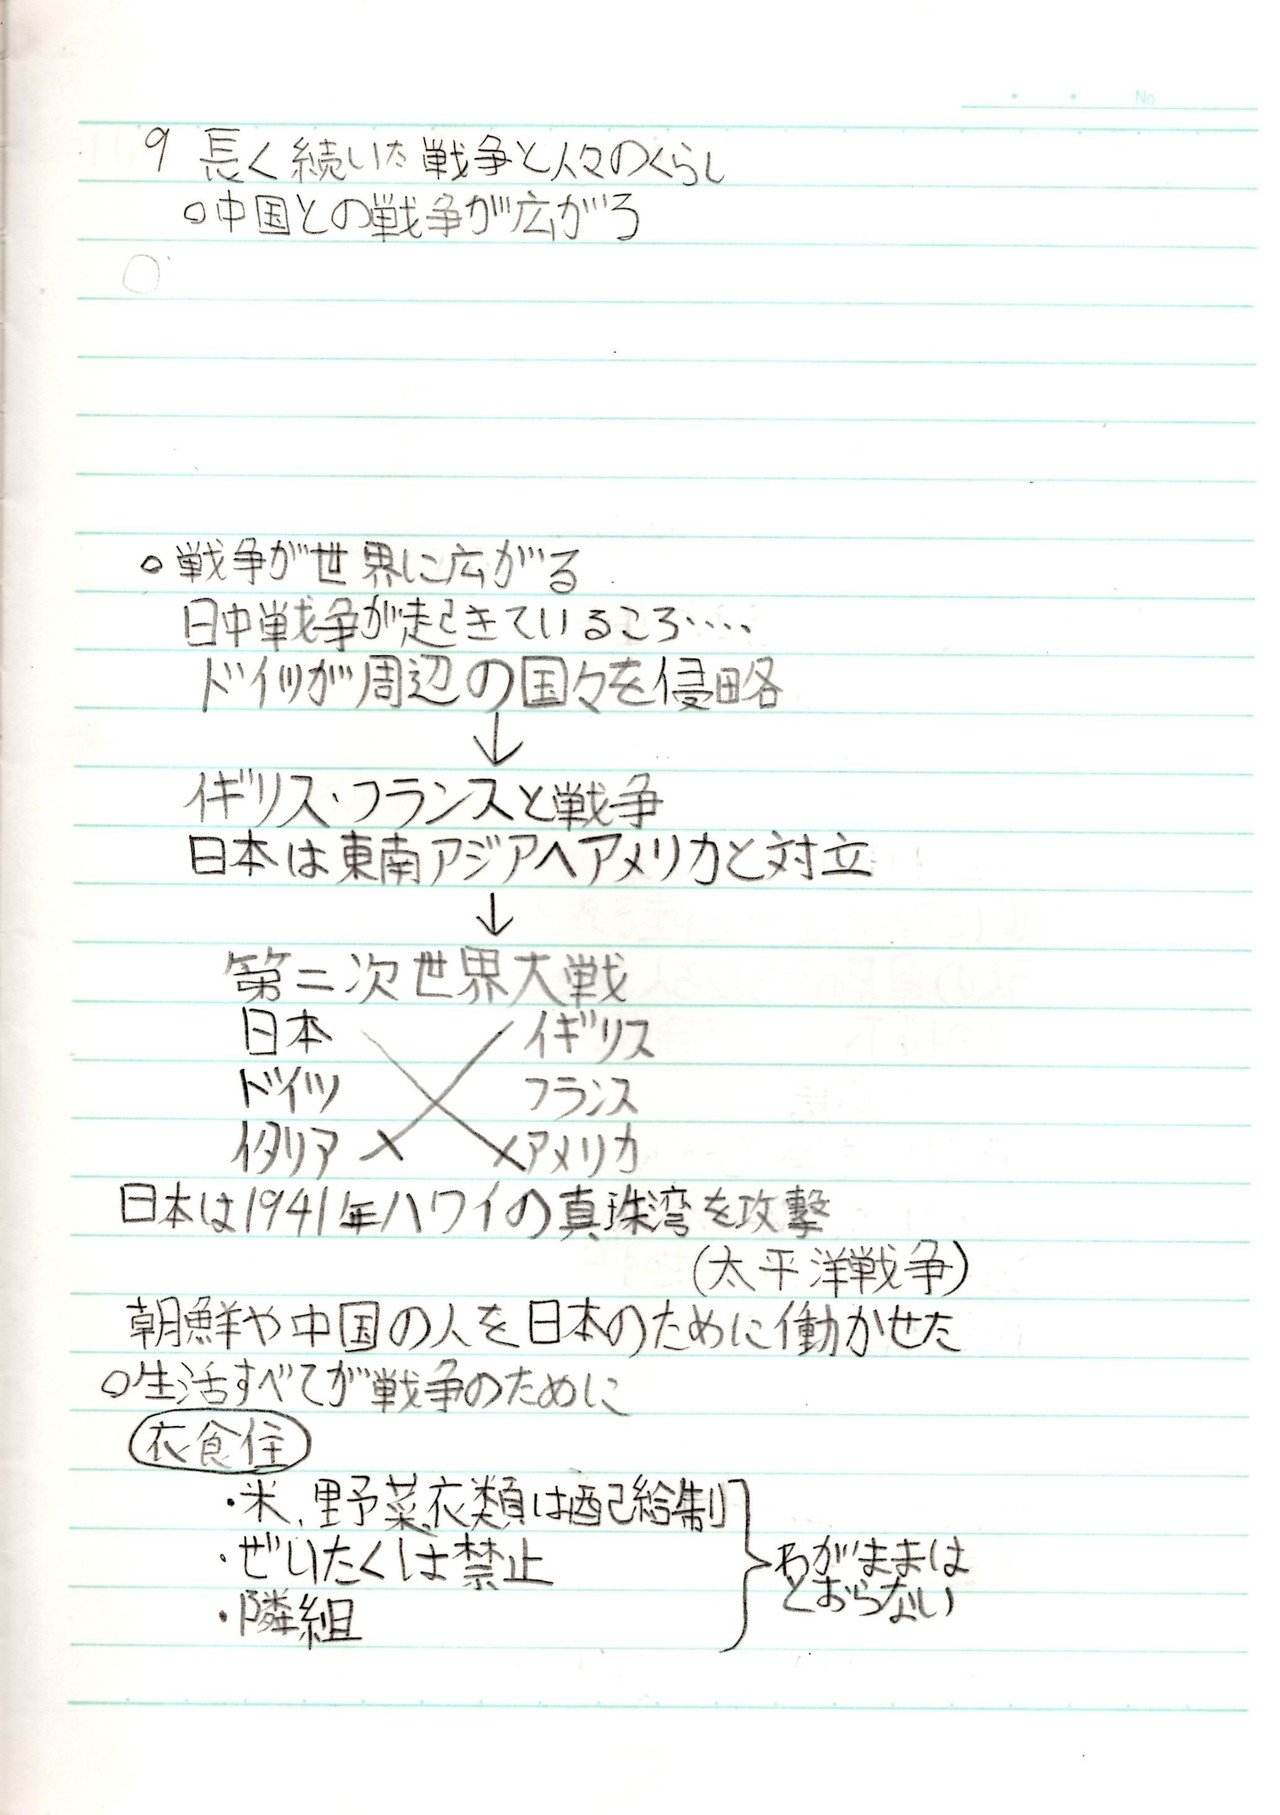 No.
9 長く続いた戦争と人々のくらし
○中国との戦争が広がろ
○戦争が世界に広がる
日中戦争が起きているころ‥‥
ドイツが周辺の国々を侵略
↓
イギリス・フランスと戦争
日本は東南アジアへアメリカと対立
↓
第二次世界大戦
日本 イギリス
ドイツ フランス
イタリア アメリカ
日本は1941年ハワイの真珠湾を攻撃
(太平洋戦争)
朝鮮や中国の人を日本のために働かせた
○生活すべてが戦争のために
衣食住
・米、野菜、衣類は配給制
・ぜいたくは禁止
・隣組
わがままは
とおらない